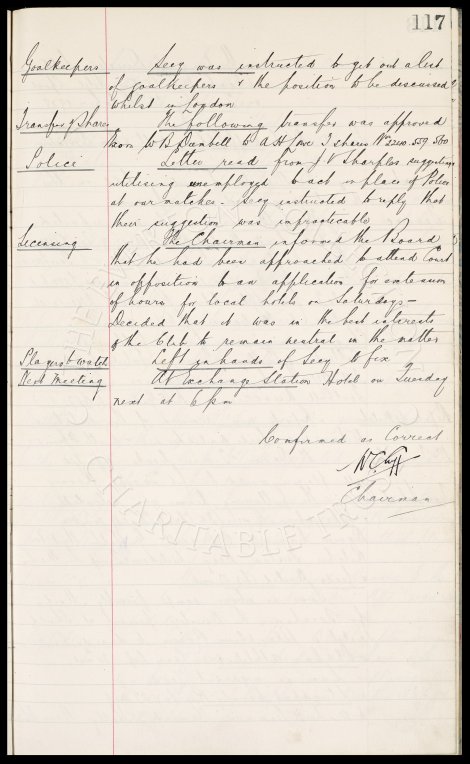 117
Goalkeepers Secy was instructed to get out a list
of goalkeepers & the position to be discussed
whilst in London
Transfer of Shares The following transfer was approved
from W B Dambell to A H Lowe 3 shares Nos 2210. 559. 560
Police Letter read from J V Sharples suggesting
utilising unemployed to act in place of Police
at our matches. Secy instructed to reply that
their suggestion was impracticable
Licensing The Chairman informed the Board
that he had been approached to attend Court
in opposition to an application for extension
of hours for local hotels on Saturdays—
Decided that it was in the best interests
of the Club to remain neutral in the matter
Players to watch Left in hands of Secy to fix
Next Meeting At Exchange Station Hotel on Tuesday
next at 6pm
Confirmed as Correct
W. C. Cuff
Chairman
CHARITABLE TR